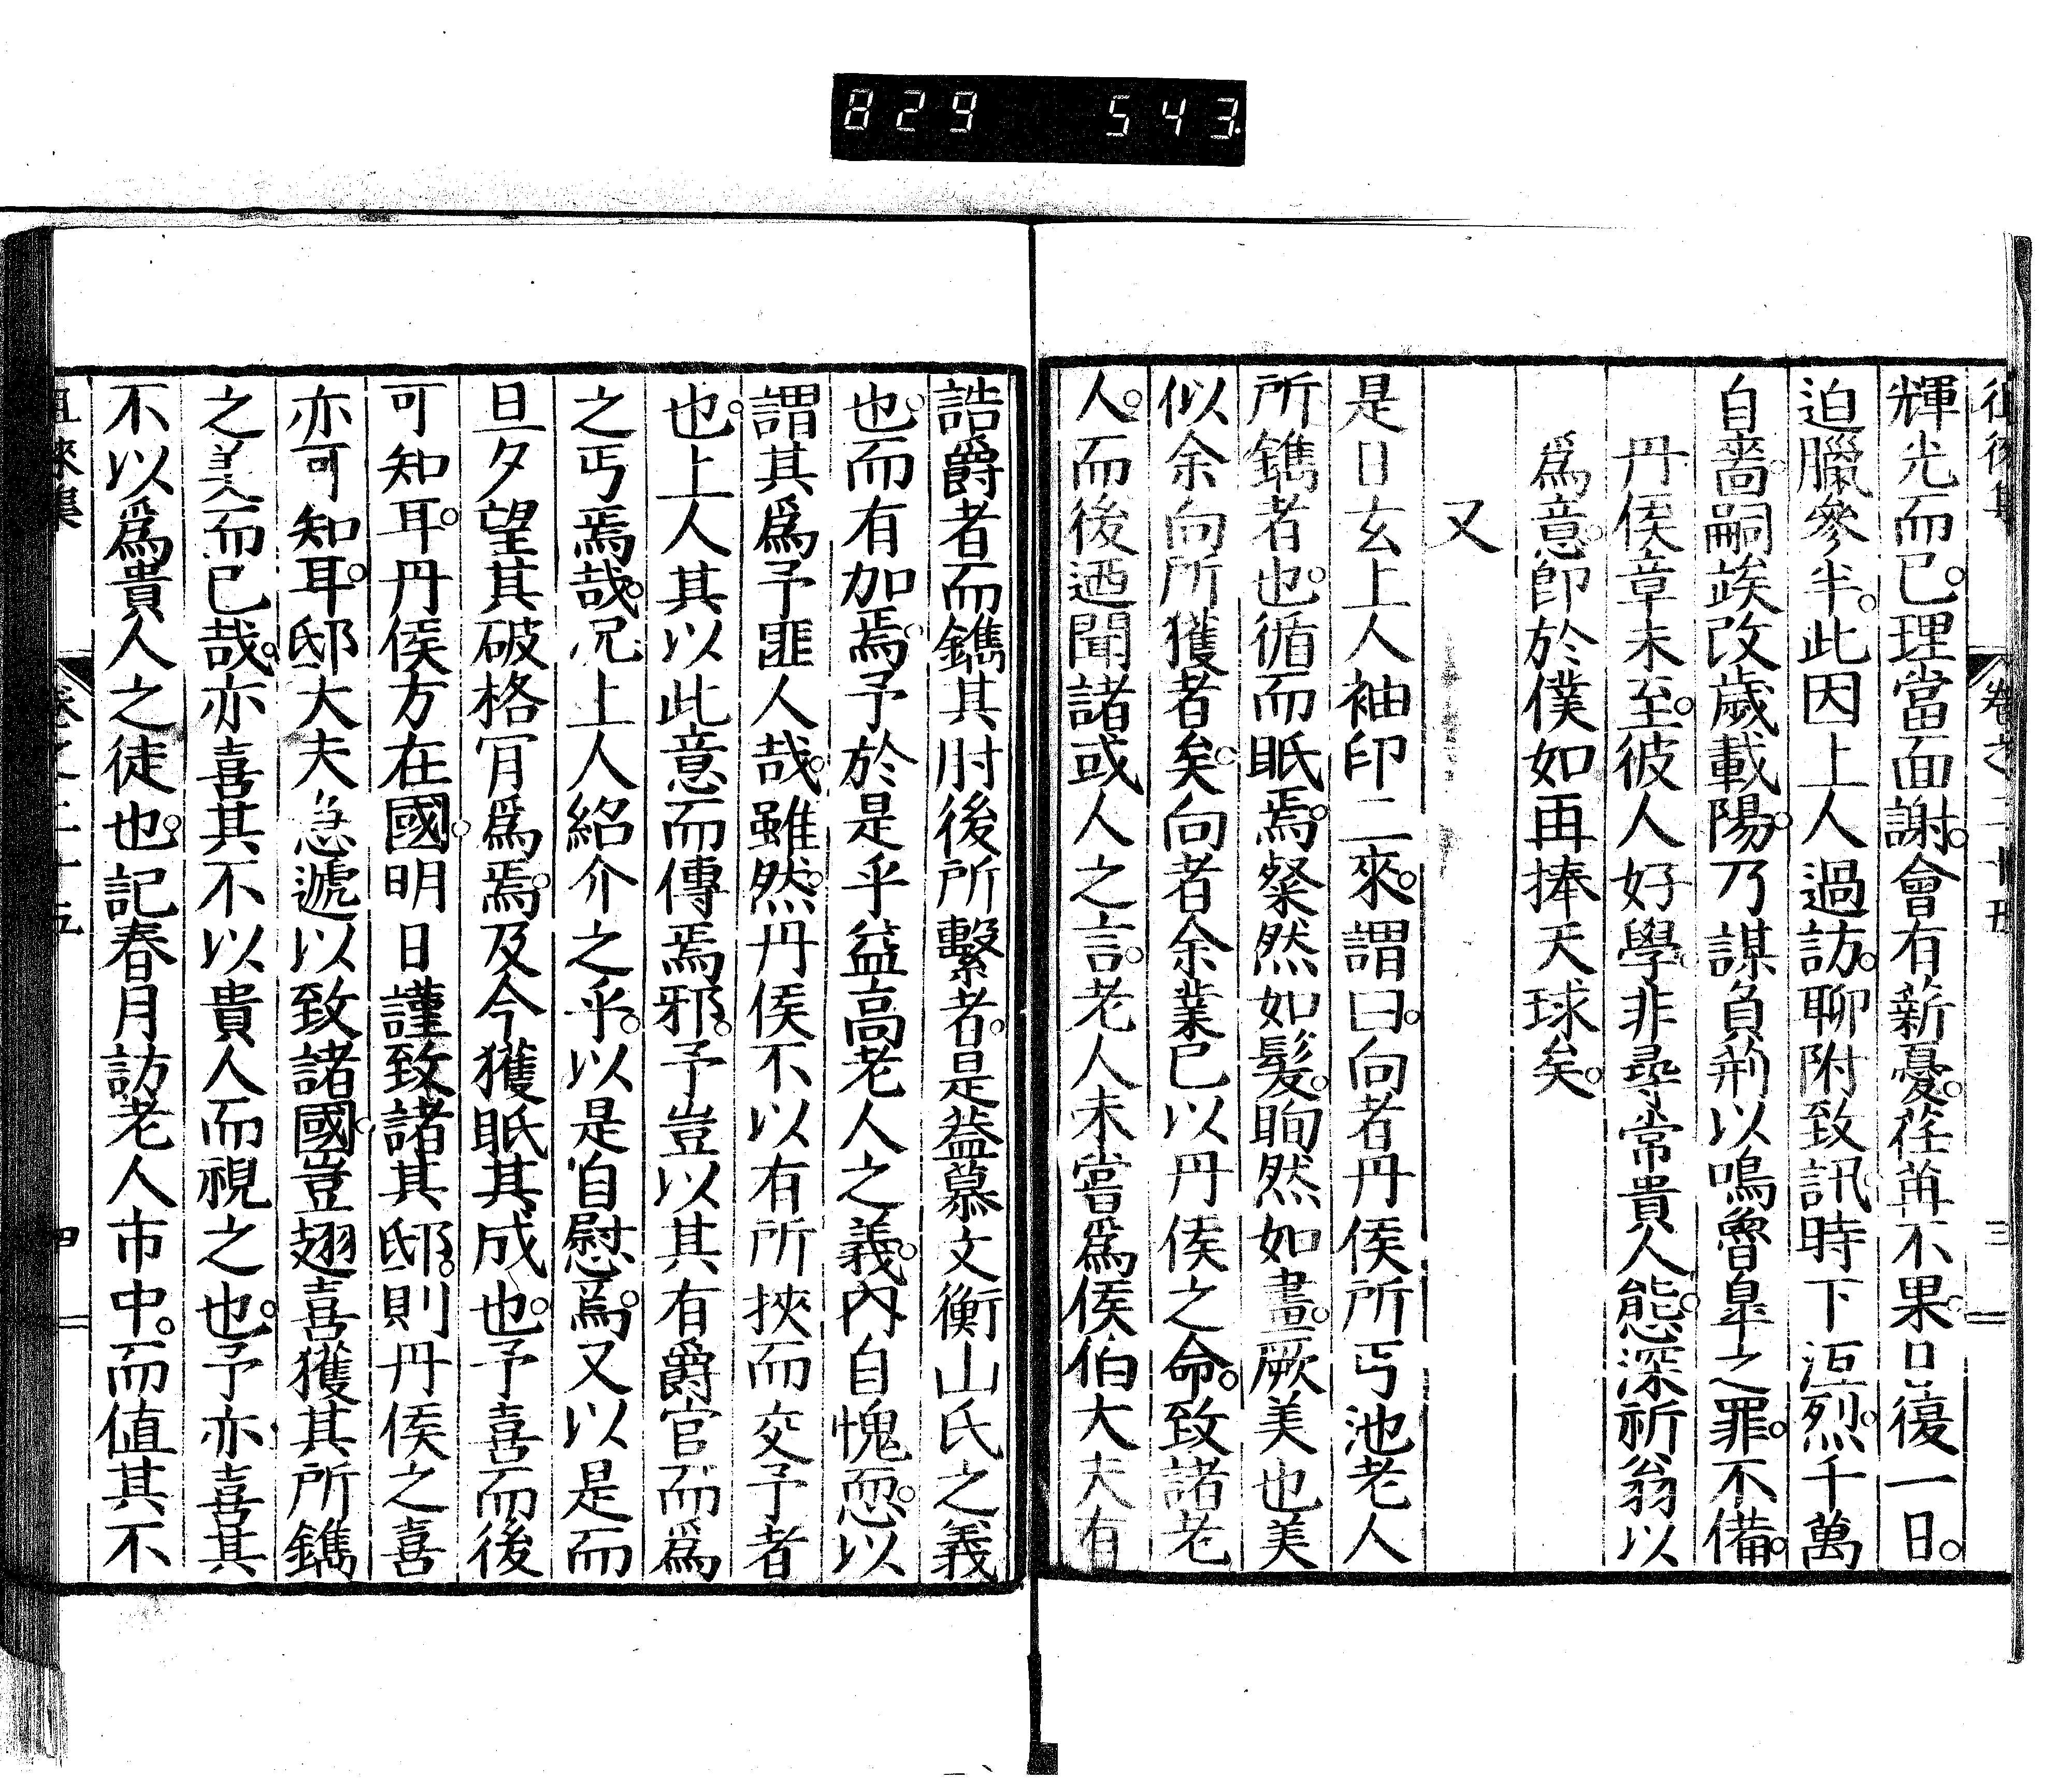 829 543
輝光而已。理當面謝。會有薪憂。荏苒不果。口復一日。
迫臘參半。此因上人過訪。聊附致訊。時下沍烈。千萬
自嗇。嗣竢改歲載陽。乃謀負荊以鳴魯皐之罪。不備。
丹侯章未至。彼人好學。非尋常貴人態。深祈翁以
爲意。卽於僕如再捧天球矣。
又
是日玄上人袖印二來。謂曰。向者丹侯所丐池老人
所鐫者也。循而眂焉。粲然如髮。眴然如畫。厥美也美
似余向所獲者矣。向者余業已以丹侯之命。致諸老
人。而後迺聞諸或人之言。老人未嘗爲侯伯大夫有
誥爵者而鐫其肘後所繫者。是葢慕文衡山氏之義
也。而有加焉。予於是乎益高老人之義。內自愧恧。以
謂其爲予匪人哉。雖然。丹侯不以有所挾而交予者
也。上人其以此意而傳焉邪。予豈以其有爵官而爲
之丐焉哉。况上人紹介之乎。以是自慰焉。又以是而
旦夕望其破格肎爲焉。及今獲眂其成也。予喜而後
可知耳。丹侯方在國。明日謹致諸其邸。則丹侯之喜
亦可知耳。邸大夫急遞以致諸國。豈翅喜獲其所鐫
之美而已哉。亦喜其不以貴人而視之也。予亦喜其
不以爲貴人之徒也。記春月訪老人市中。而值其不